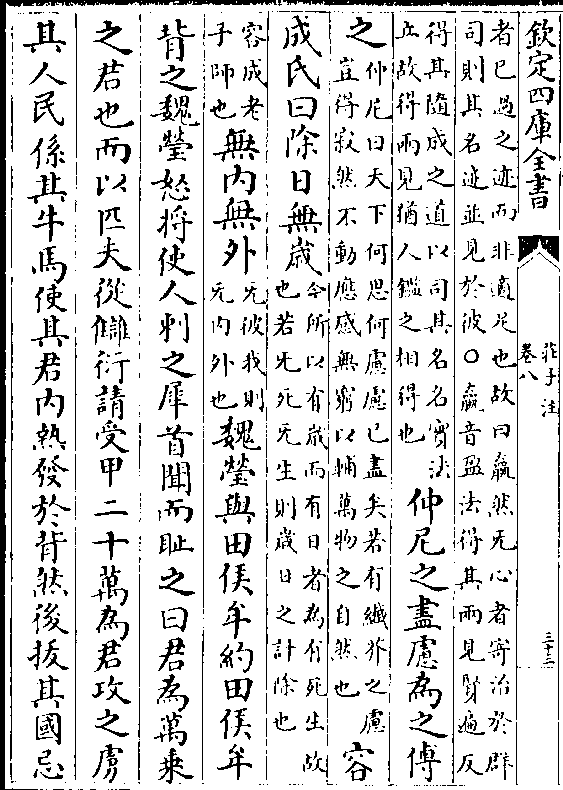 欽定四庫全書
莊子注
卷八
三十三
者已過之迹而非適足也故曰贏然无心者寄治於群
司則其名迹並見於彼○贏音盈法得其兩見賢遍反
得其隨成之道以司其名名實法
立故得兩見猶人鑑之相得也
仲尼之盡慮為之傅
之
仲尼曰天下何思何慮慮已盡矣若有纖芥之慮
豈得寂然不動應感無窮以輔萬物之自然也
容
成氏曰除日無歲
今所以有歲而有日者為有死生故
也若无死无生則歲日之計除也
容成老
子師也
無内無外
无彼我則
无内外也
魏瑩與田侯牟約田侯牟
背之魏瑩怒將使人刺之犀首聞而恥之曰君為萬乗
之君也而以匹夫從讎衍請受甲二十萬為君攻之虜
其人民係其牛馬使其君内熱發於背然後拔其國忌